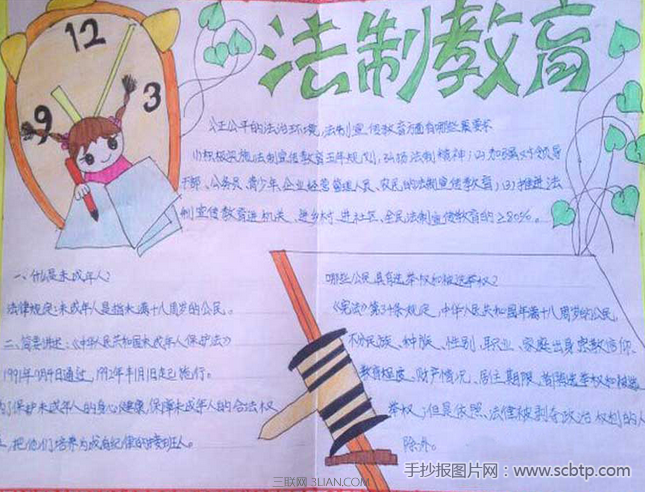 法制教育
12
9
3
公正公平的法治环境,法制宣传教育方面有哪些具要求
(1)积极实施法制宣传教育五年规划,弘扬法制精神;(2)加强对领导
干部、公务员、青少年、企业经营管理人员、农民的法制宣传教育;(3)推进法
制宣传教育进机关、进乡村、进社区、全民法制宣传教育的≥80%。
一、什么是未成年人?
法律规定:未成年人是指未满十八周岁的公民。
二、简要讲述:《中华人民共和国未成年人保护法》
1991年9月4日通过,1992年1月1日起施行。
为了保护未成年人的身心健康,保障未成年人的合法权
把他们培养为成有纪律的接班人。
哪些公民具有选举权和被选举权?
《宪法》第34条规定,中华人民共和国年满十八周岁的公民,
不分民族、种族、性别、职业、家庭出身宗教信仰、
教育程度、财产情况、居住期限、都有选举权和被选
举权;但是依照法律被剥夺政治权利的人
除外。
三联网 3LIAN.COM
手抄报图片网:www.scbtp.com